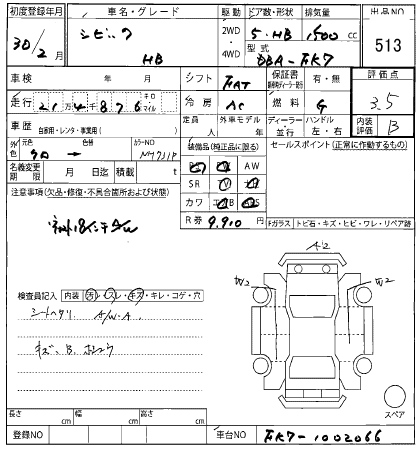 初度登録年月 車名・グレード 駆動 ドア数・形状 排気量 出品NO
30/2月 シビック HB 2WD・4WD 5・HB 1500cc 513
型式 DBA-FK7
車検 年 月 シフト FAT 保証書 有・無 評価点
走行 21万4千876 キロ マイル 冷房 AC 燃料 G 3.5
車歴 自家用・レンタ・事業用( ) 定員 人 外車モデル 年 ディーラー・並行 ハンドル 左・右 内装評価 B
外色 元色 クロ → 色替 カラーNO NH731P
装備品(純正品に限る) セールスポイント(正常に作動するもの)
名義変更期限 月 日迄 積載 t
PS PW AW
SR TV ナビ
カワ エアB ABS
R券 9,910 円
注意事項(欠品・修復・不具合箇所および状態)
Fガラス トビ石・キズ・ヒビ・ワレ・リペア跡
社外18インチAW
A2
W2
W2
検査員記入 内装 汚・スレ・キズ・キレ・コゲ・穴
シートヘタリ A/W・A
キズ、B、ホシュウ
スペア
長さ cm 幅 cm 高さ cm
登録NO 車台NO FK7-1002066